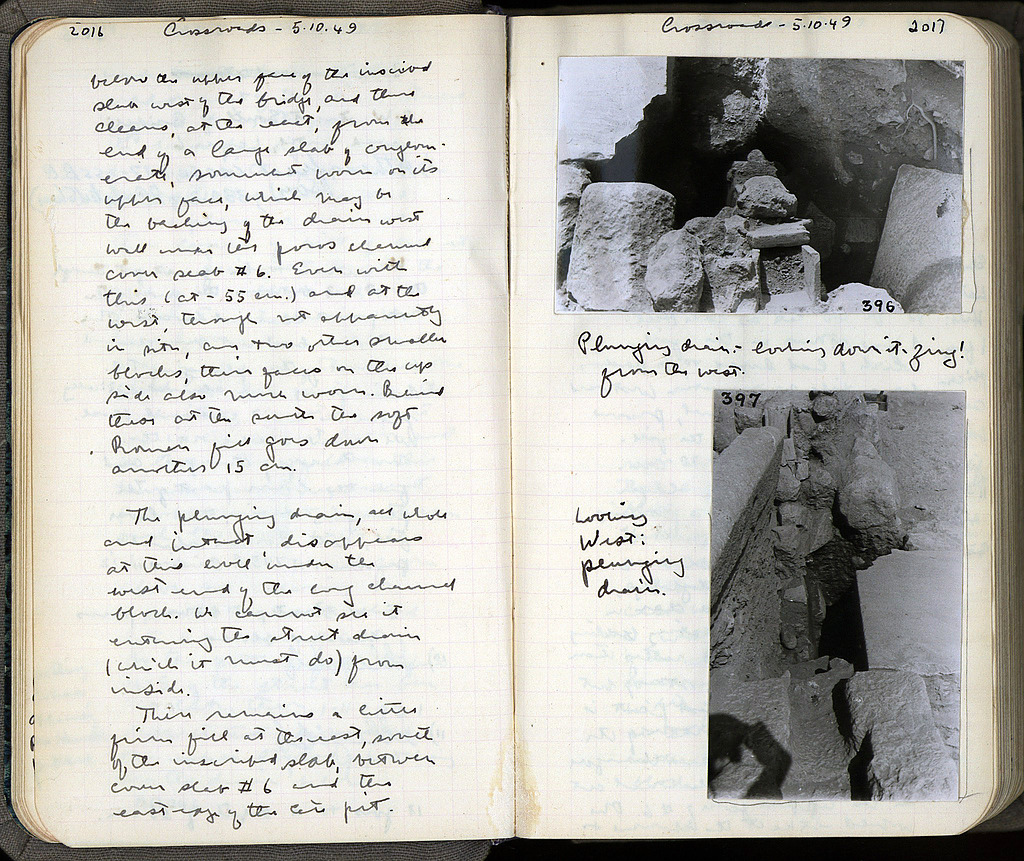 2016 Crossroads - 5.10.49
below the upper face of the inscribed
slab west of the bridge, and thus
clears, at the east, from the
end of a large slab of conglom-
erate, somewhat worn on its
upper face, which may be
the backing of the drain west
wall under the poros channel
cover slab #6. Even with
this (at - 55 cm.) and at the
west, though not apparently
in situ, are two other smaller
blocks, their faces on the up
side also much worn. Behind
these at the south the soft
Roman fill goes down
another 15 cm.
The plunging drain, all whole
and intact, disappears
at this level under the
west end of the long channel
block. We cannot see it
entering the street drain
(which it must do) from
inside.
There remains a little
firm fill at the east, south
of the inscribed slab, between
cover slab #6 and the
east edge of the late pit.
Crossroads - 5.10.49 2017
396
Plunging drain - looking down it - zing!
from the west.
397
Looking
West:
plunging
drain.